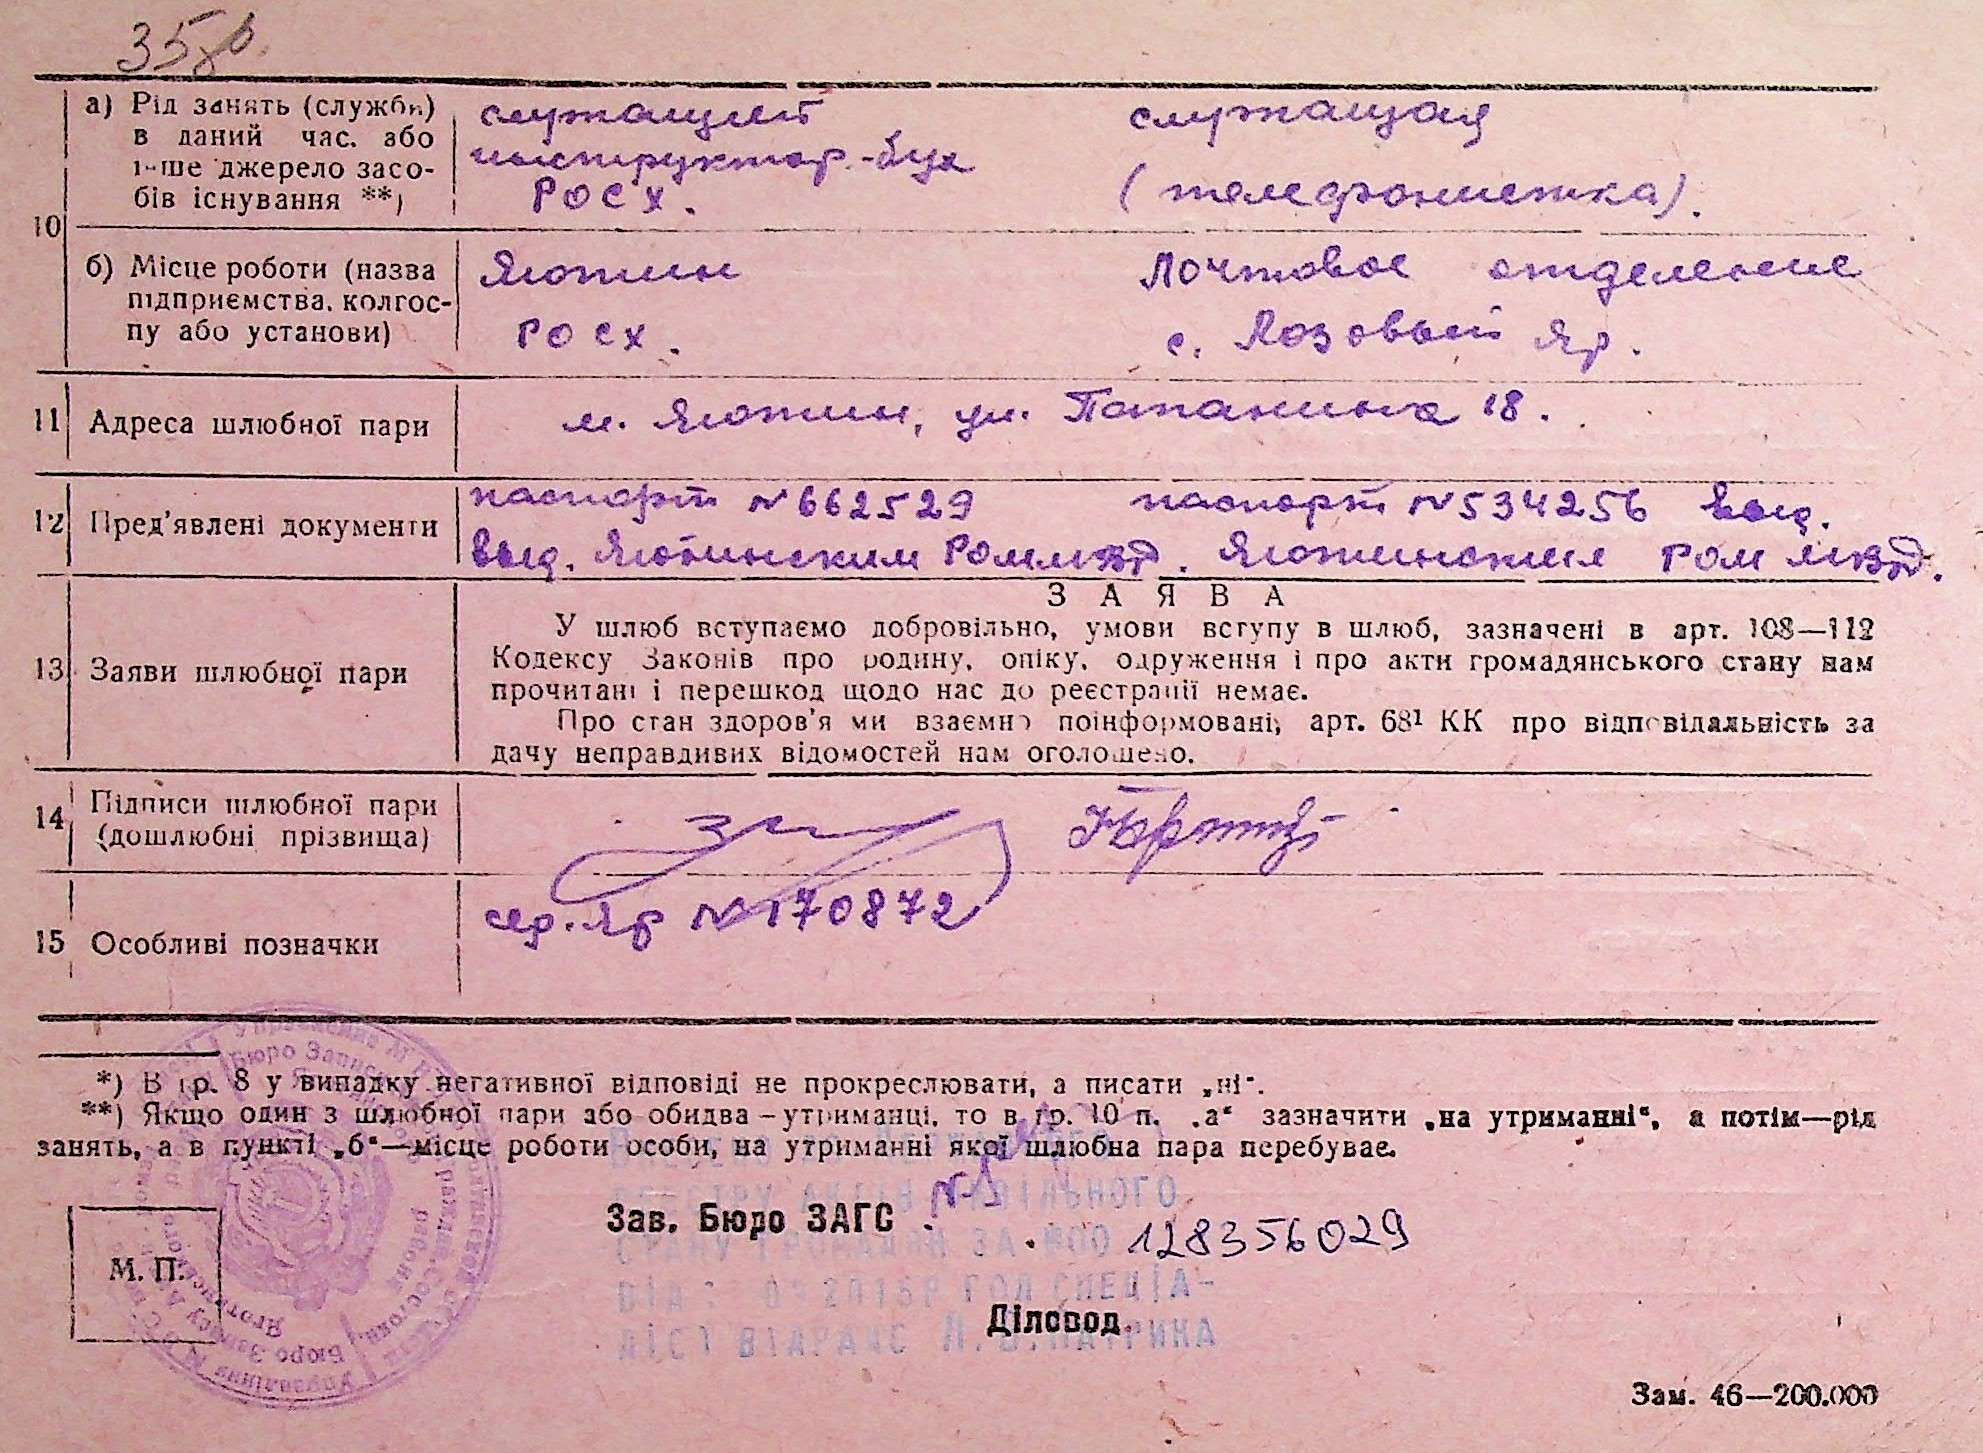 35 р.
а) Рід занять (служби) служащий служащая
в даний час. або инструктор-бух
інше джерело засо- РОСХ. (телефонистка).
бів існування **)
10
б) Місце роботи (назва Яготин Почтовое отделение
підприємства, колгос-
пу або установи) РОСХ. с. Лозовый Яр.
11 Адреса шлюбної пари м. Яготин, ул. Папанина 18.
паспорт №662529 паспорт №534256 выд.
12 Пред'явлені документи
выд. Яготинским РОММВД. Яготинским РОМ МВД.
ЗАЯВА
У шлюб вступаємо добровільно, умови вступу в шлюб, зазначені в арт. 108—112
13 Заяви шлюбної пари Кодексу Законів про родину, опіку, одруження і про акти громадянського стану нам
прочитані і перешкод щодо нас до реєстрації немає.
Про стан здоров'я ми взаємно поінформовані, арт. 68¹ КК про відповідальність за
дачу неправдивих відомостей нам оголошено.
14 Підписи шлюбної пари
(дошлюбні прізвища)
сер. Яр №170872
15 Особливі позначки
*) В гр. 8 у випадку негативної відповіді не прокреслювати, а писати „ні“.
**) Якщо один з шлюбної пари або обидва – утриманці, то в гр. 10 п. „а“ зазначити „на утриманні“, а потім—рід
занять, а в пункті „б“—місце роботи особи, на утриманні якої шлюбна пара перебуває.
РЕЄСТРУ АКТІВ ЦИВІЛЬНОГО
Зав. Бюро ЗАГС
СТАНУ ГРОМАДЯН ЗА №00 128356029
М. П.
ВІД 2015Р ГОЛ СПЕЦІА-
Діловод
ЛІСТ ВІДРАЦС
Зам. 46—200.000